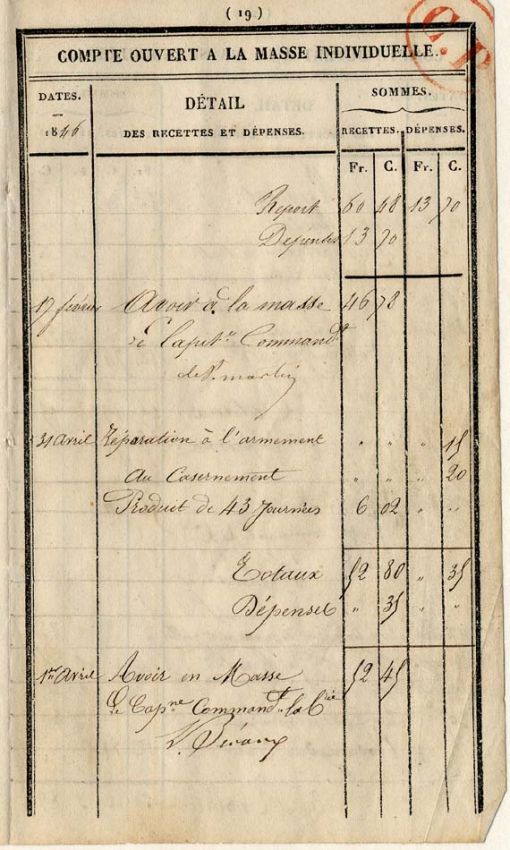 ( 19 )
COMPTE OUVERT A LA MASSE INDIVIDUELLE.
DATES.
1846
DÉTAIL
DES RECETTES ET DÉPENSES.
SOMMES.
RECETTES. DÉPENSES.
Fr. C. Fr. C.
Report 60 48 13 70
Dépenses 13 70
17 février Avoir à la masse 46 78
Le Capit.ne Command.t
31 Avril Réparation à l'armement " " " 15
Au Casernement " " " 20
Produit de 43 Journées 6 02 " "
Totaux 52 80 " 35
Dépenses " 35 " "
1er Avril Avoir en Masse 52 45
Le Capne Command.t la Cie